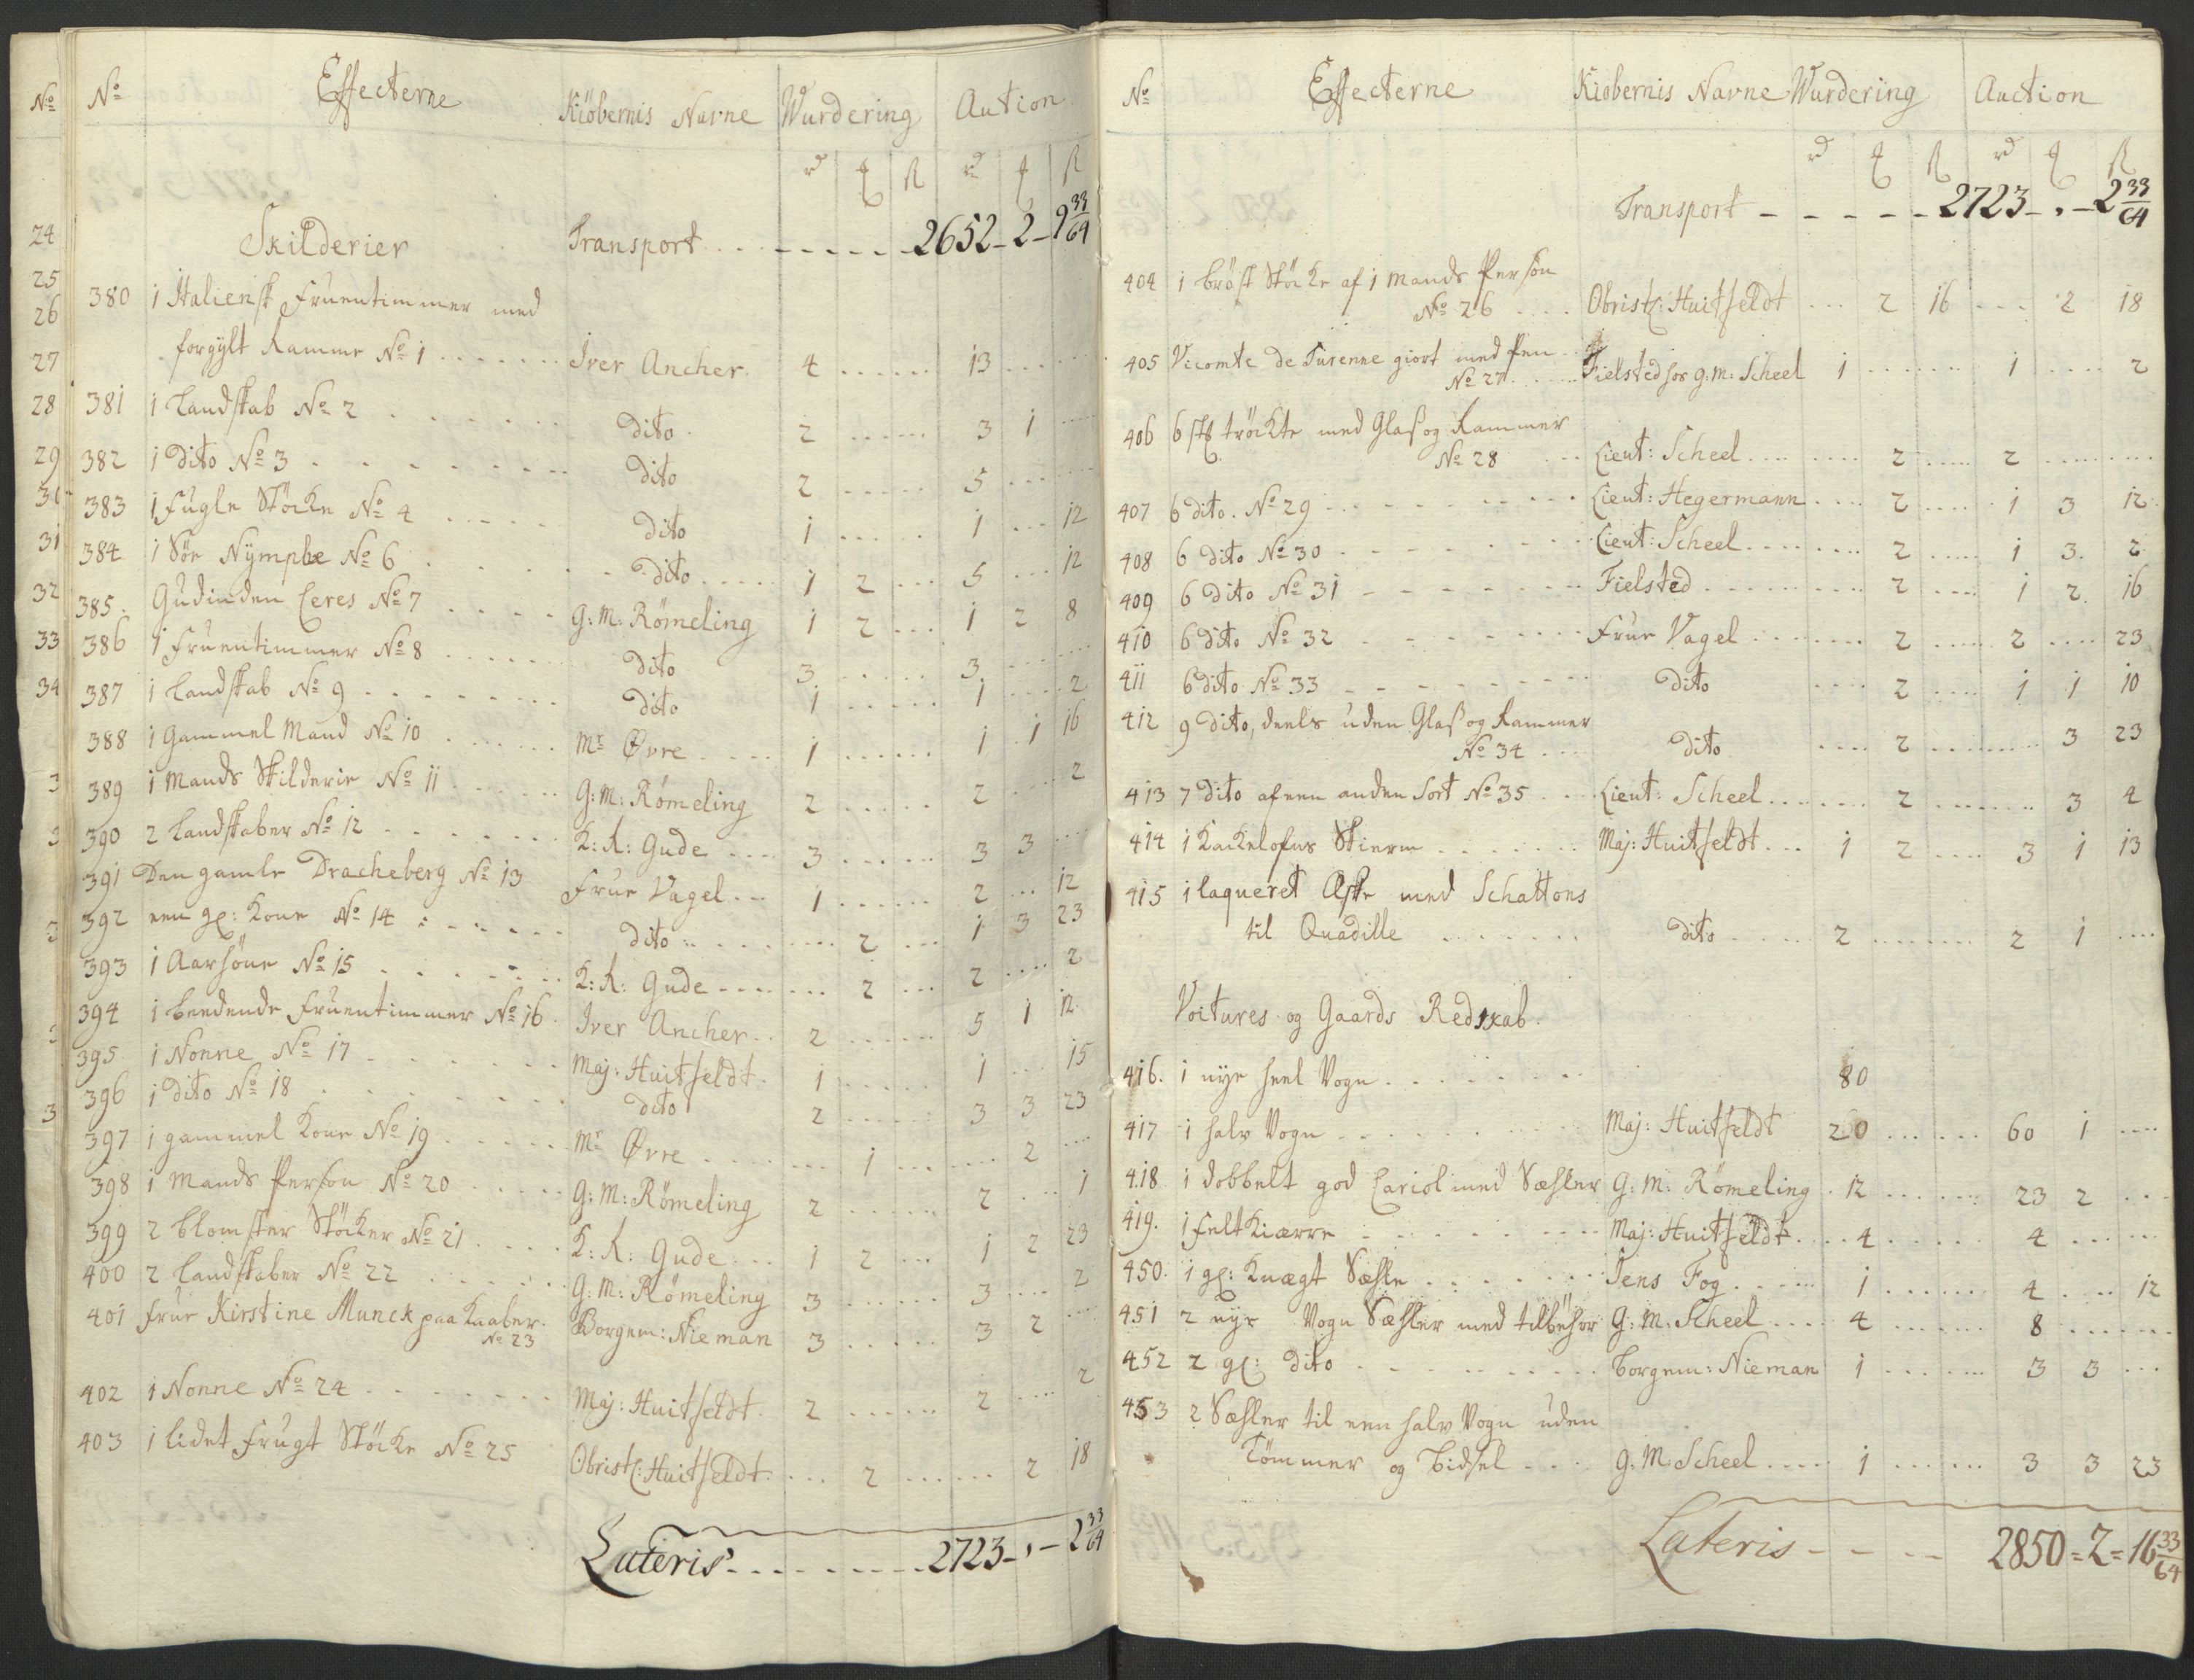 No
24
25
26
27
28
29
30
31
32
33
34
No Effecterne Kiöbernis Navne Wurdering Aution
rd ort ß rd ort ß
Skilderier Transport . . . - - - - - 2652 - 2 - 9 33/64
380 1 Italiensk Fruentimmer med
forgylt Ramme No 1 . . . . . . . Iver Ancher. 4 . . . . . . 13 . . . .
381 1 Landskab No 2 . . . . . . dito. 2 . . . . . . 3 1 . . . .
382 1 Dito No 3 . . . . . . . . dito 2 . . . . . 5 . . . .
383 1 Fugle Stöcke No 4 . . . . . dito 1 . . . . . 1 . . . 12
384 1 Söe Nymphe No 6 . . . . . dito . . . . . 1 2 . . . 5 . . . 12
385. Gudinden Ceres No 7 . . . . . G: M: Römeling 1 2 . . . 1 2 8
386 1 Fruentimmer No 8 . . . . . . dito 3 . . . . . 3 . . . . . .
387 1 Landskab No 9 . . . . . . . . dito 1 . . . . . 1 . . . . 2
388 1 Gammel Mand No 10 . . . . . . Mr Øvre . . . . 1 . . . . . . 1 1 16
389 1 Mands Skilderie No 11 . . . . . . G: M: Römeling 2 . . . . . 2 . . . 2
390 2 Landskaber No 12 . . . . . . . K: R: Gude . . . . 3 . . . . . 3 3 . . . .
391 Den gamle Dracheberg No 13 Frue Vagel . . . 1 . . . . . . 2 . . . 12
392 een gl: Kone No 14 . . . . . . dito . . . . . . . . 2 . . . 1 3 23
393 1 Aarhöne No 15 . . . . . . . K: R: Gude . . . . . . . 2 . . . 2 . . . . 2
394 1 beedende Fruentimmer No 16 . Iver Ancher . . 2 . . . . . . 5 1 12.
395 1 Nonne No 17 . . . . . . . Maj: Huitfeldt. 1 . . . . . 1 . . . 15
396 1 dito No 18 . . . . . . . dito 2 . . . . . . 3 3 23
397 1 gammel Kone No 19 . . . . . . Mr Øvre . . . . . . . 1 . . . . . . . 2 . . . .
398 1 Mands Person No 20 . . . . . G: M: Römeling 2 . . . . . . 2 . . . 1
399 2 Blomster Stöcker No 21 . . . . K: R: Gude . . . 1 2 . . . 1 2 23
400 2 Landskaber No 22 . . . . . . G: M: Römeling 3 . . . . . . 3 . . . . 2
401 Frue Kirstine Munck paa Kaaber. Borgem: Nieman 3 . . . . . 3 2 . . . .
No 23
402 1 Nonne No 24 . . . . . . . . Maj: Huitfeldt. 2 . . . . . . 2 . . . . 2
403 1 lidet Frugt Stöcke No 25 Obristl: Huitfeldt. . . . 2 . . . . . . 2 18
Lateris . . . . . . . . . . 2723 - , - 2 33/64
No Effecterne Kiobernis Navne Wurdering Auction
rd ort ß rd ort ß
Transport - - - - - 2723 - , - 2 33/64
404 1 Bröst Stöcke af 1 Mands Person
No 26 . . . . Obristl: Huitfeldt . . . 2 16 . . . 2 18
405 Vicomte de Turenne giort med Pen
No 27 . . . . . Fielsted for G: M: Scheel 1 . . . . . . 1 . . . . 2
406 6 stk tröckte med Glas og Rammer
No 28 . . . Lieut: Scheel . . . . . . . . 2 . . . . . 2 . . . . . . . . .
407 6 dito. No 29 . . . . . . . . . Lieut: Hegermann . . . . 2 . . . . . 1 3 12.
408 6 dito No 30 . . . . . . . . . Lieut: Scheel . . . . . . . . 2 . . . . . 1 3. 2.
409 6 Dito No 31 - - - - - - - Fielsted . . . . . . . . . . 2 . . . . 1 2. 16
410 6 dito No 32 . - - - - - - Frue Vagel . . . . . . . . 2 . . . . . 2 . . . . 23
411 6 dito No 33 - - - - - - - dito . . . . 2 . . . . 1 1 10
412 9 Dito, deels uden Glas og Rammer
No 34 . . . . dito . . . . 2 . . . . . . . . 3 23
413 7 dito af een anden Sort No 35 . . . Lieut: Scheel . . . . . . . 2 . . . . . . . . 3 4
414 1 Kackelofns Skierm . . . . . . . Maj: Huitfeldt . . . 1 2 . . . . 3 1 13
415 1 laqueret Æske med Schattons
til Quadille . . . . . . . dito . . . . . 2 . . . . . . . . 2 1 . . . .
Voitures og Gaards Redskab.
416. 1 nye heel Vogn . . . . . . . . 80
417 1 halv Vogn . . . . . . . . . Maj: Huitfeldt 20 . . . . . . 60 1 . . . .
418 1 dobbelt god Cariol med Sæhler G: M: Römeling . 12 . . . . . . 23 2 . . .
419. 1 Felt Kiærre - - - - - - - - - Maj: Huitfeldt . . . . 4 . . . . . . 4 . . . . . .
450. 1 gl: Knægt Sæhle . . . . . . . Jens Fog . . . . . 1 . . . . . . . 4 . . . . 12
451 2 nye Vogn Sæhler med tilbehör G: M. Scheel . . . . 4 . . . . . . 8 . . . . . . .
452 2 gl: dito . . . . . . . . . Borgem: Nieman 1 . . . . . . 3 3 . . .
453 2 Sæhler til een halv Vogn uden
Tömmer og Bidsel . . . . G: M: Scheel . . . . . 1 . . . . . . 3 3 23
Lateris - - - - 2850 = 2 = 16 33/64